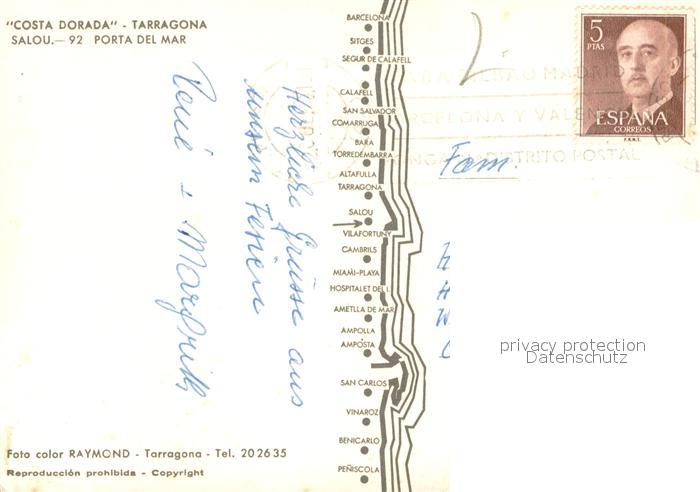 "COSTA DORADA" - TARRAGONA
SALOU.— 92 PORTA DEL MAR
Herzliche Grüsse aus
unsern Ferien
René + Margrith
Foto color RAYMOND - Tarragona - Tel. 202635
Reproducción prohibida - Copyright
BARCELONA
SITGES
SEGUR DE CALAFELL
CALAFELL
SAN SALVADOR
COMARRUGA
BARA
TORREDEMBARRA
ALTAFULLA
TARRAGONA
SALOU
VILAFORTUNY
CAMBRILS
MIAMI-PLAYA
HOSPITALET DEL I.
AMETLLA DE MAR
AMPOLLA
AMPOSTA
SAN CARLOS
VINAROZ
BENICARLO
PEÑISCOLA
5
PTAS
ESPAÑA
CORREOS
F.N.M.T.
BILBAO MADRID
BARCELONA Y VALENCIA
PONGA DISTRITO POSTAL
Fam.
privacy protection
Datenschutz